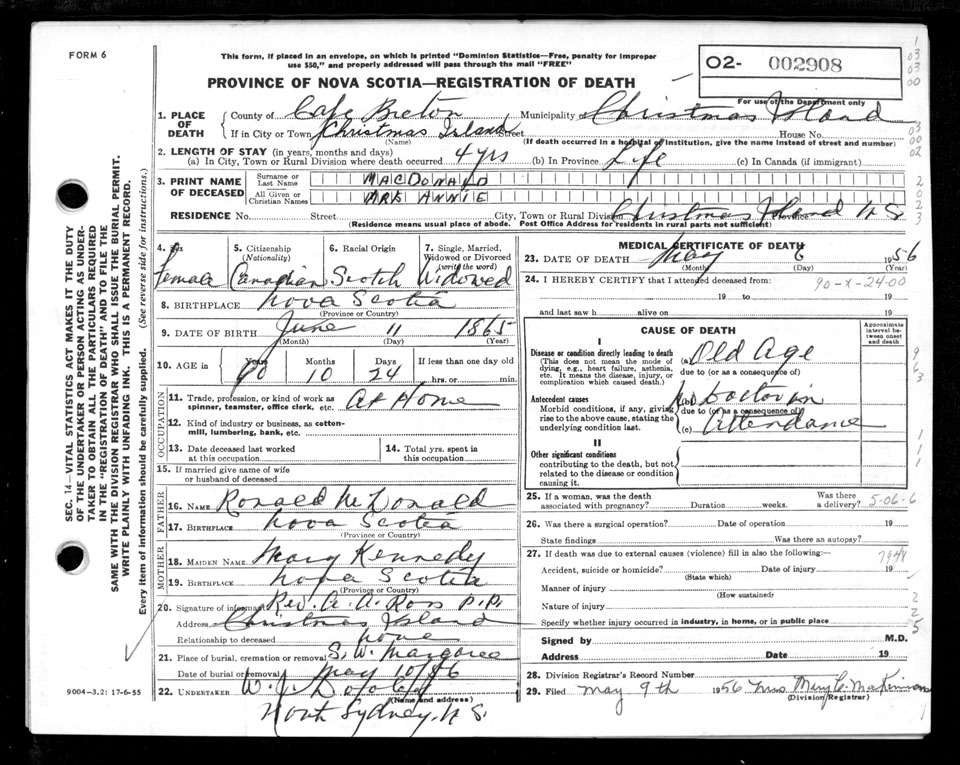 FORM 6
This form, if placed in an envelope, on which is printed "Dominion Statistics—Free, penalty for improper
use $50," and properly addressed will pass through the mail "FREE"
PROVINCE OF NOVA SCOTIA—REGISTRATION OF DEATH
O2- 002908
For use of the Department only
1. PLACE OF DEATH
County of Cape Breton Municipality of Christmas Island
If in City or Town Christmas Island Street House No.
(Name) (If death occurred in a hospital or institution, give the name instead of street and number)
2. LENGTH OF STAY (in years, months and days)
(a) In City, Town or Rural Division where death occurred 4 yrs (b) In Province Life (c) In Canada (if immigrant)
3. PRINT NAME OF DECEASED
Surname or Last Name MACDONALD
All Given or Christian Names MRS ANNIE
RESIDENCE No. Street City, Town or Rural Division Christmas Island Province N S
(Residence means usual place of abode. Post Office Address for residents in rural parts not sufficient)
4. Sex 5. Citizenship (Nationality) 6. Racial Origin 7. Single, Married, Widowed or Divorced (write the word)
Female Canadian Scotch Widowed
8. BIRTHPLACE Nova Scotia
(Province or Country)
9. DATE OF BIRTH June 11 1865
(Month) (Day) (Year)
10. AGE in Years Months Days If less than one day old
90 10 24 hrs. or min.
OCCUPATION
11. Trade, profession, or kind of work as spinner, teamster, office clerk, etc. At Home
12. Kind of industry or business, as cotton-mill, lumbering, bank, etc.
13. Date deceased last worked at this occupation
14. Total yrs. spent in this occupation
15. If married give name of wife or husband of deceased
FATHER
16. NAME Ronald McDonald
17. BIRTHPLACE Nova Scotia
(Province or Country)
MOTHER
18. MAIDEN NAME Mary Kennedy
19. BIRTHPLACE Nova Scotia
(Province or Country)
20. Signature of informant Rev. A. A. Ross P.P.
Address Christmas Island
Relationship to deceased none
21. Place of burial, cremation or removal S. W. Margaree
Date of burial or removal May 10/56
22. UNDERTAKER W. J.
(Name and address)
North Sydney, N. S.
MEDICAL CERTIFICATE OF DEATH
23. DATE OF DEATH May 6 1956
(Month) (Day) (Year)
24. I HEREBY CERTIFY that I attended deceased from:
90-X-24-00
19 to 19
and last saw h alive on 19
CAUSE OF DEATH
Approximate interval between onset and death
I
Disease or condition directly leading to death
(This does not mean the mode of dying, e.g., heart failure, asthenia, etc. It means the disease, injury, or complication which caused death.)
(a) Old Age
due to (or as a consequence of)
Antecedent causes
Morbid conditions, if any, giving rise to the above cause, stating the underlying condition last.
(b) No Doctor in
due to (or as a consequence of)
(c) Attendance
II
Other significant conditions
contributing to the death, but not related to the disease or condition causing it.
25. If a woman, was the death associated with pregnancy? Duration weeks. Was there a delivery? 5-06-6
26. Was there a surgical operation? Date of operation 19
State findings Was there an autopsy?
27. If death was due to external causes (violence) fill in also the following:—
794X
Accident, suicide or homicide? Date of injury 19
(State which)
Manner of injury
(How sustained)
Nature of injury
Specify whether injury occurred in industry, in home, or in public place
Signed by M.D.
Address Date 19
28. Division Registrar's Record Number
29. Filed May 9th 1956 Mrs Mary C. MacKinnon
(Division Registrar)
SEC. 14—VITAL STATISTICS ACT MAKES IT THE DUTY
OF THE UNDERTAKER OR PERSON ACTING AS UNDER-
TAKER TO OBTAIN ALL THE PARTICULARS REQUIRED
IN THE "REGISTRATION OF DEATH" AND TO FILE THE
SAME WITH THE DIVISION REGISTRAR WHO SHALL ISSUE THE BURIAL PERMIT.
WRITE PLAINLY WITH UNFADING INK. THIS IS A PERMANENT RECORD.
Every item of information should be carefully supplied. (See reverse side for instructions.)
9004—3.2: 17-6-55
1
03
03
00
03
00
02
2
0
0
2
3
9
6
3
1
1
1
2
2
5
1